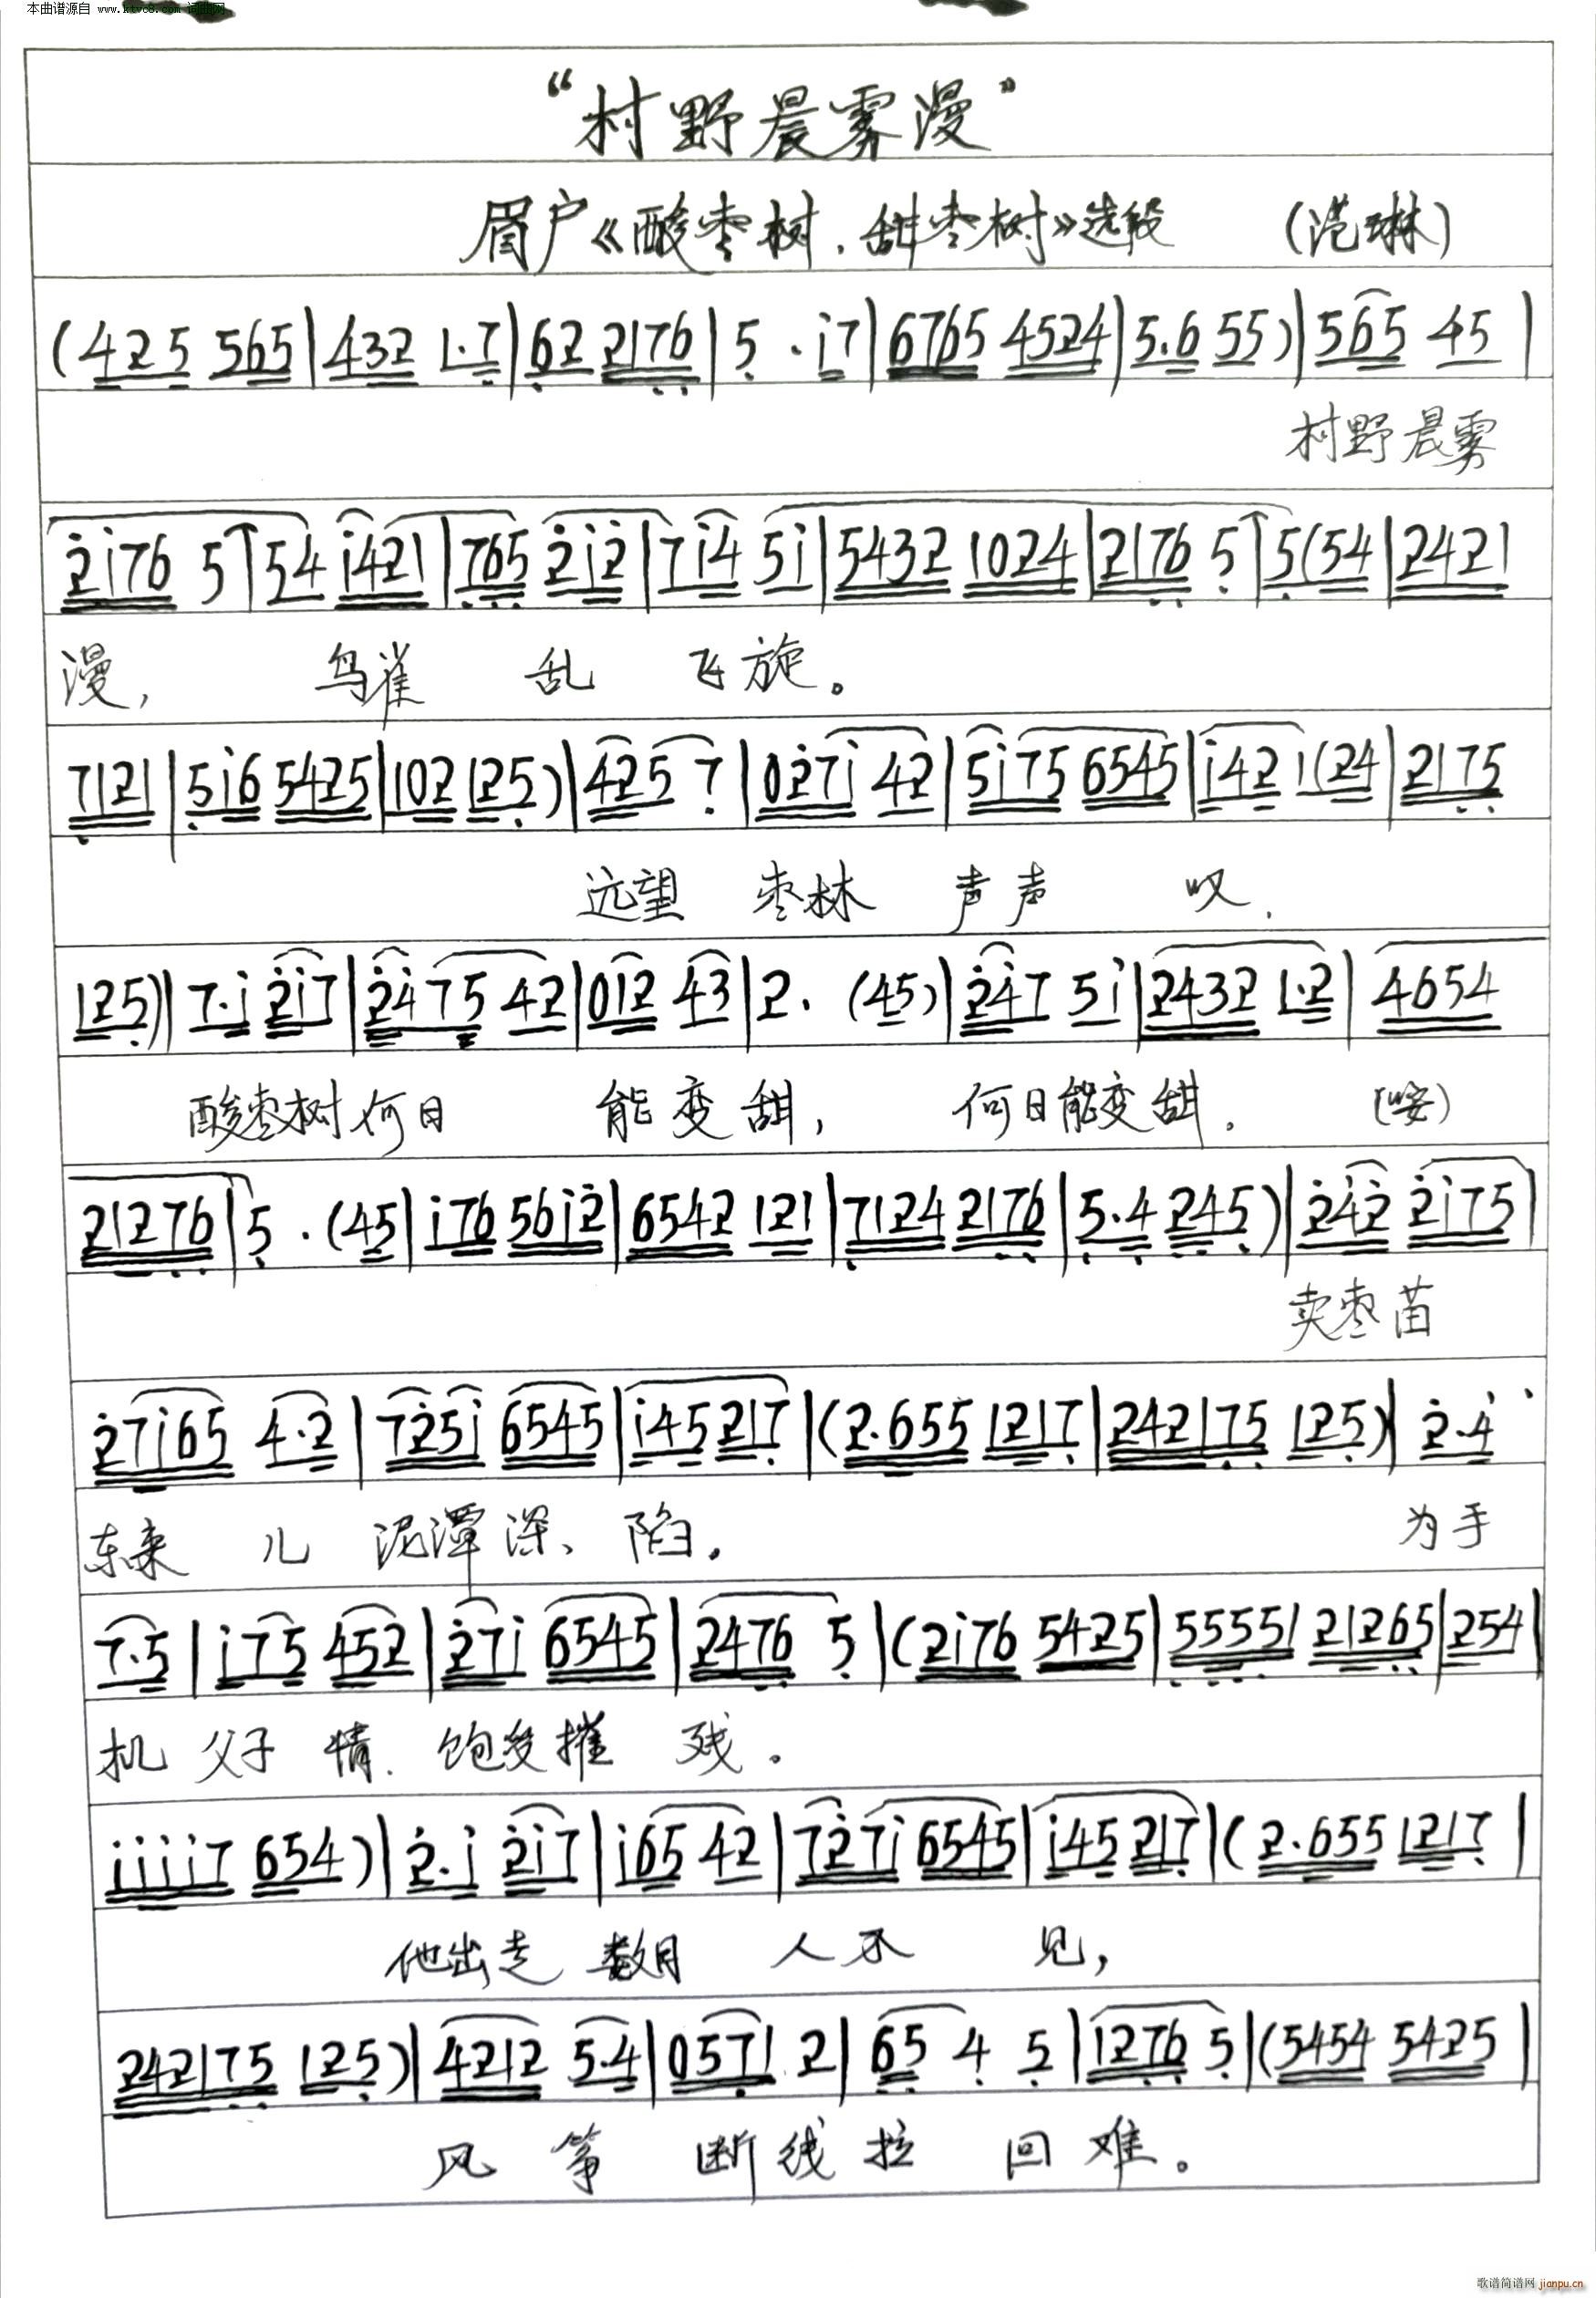 本曲谱源自 www.ktvc8.com 词曲网
“村野晨雾漫”
眉户《酸枣树、甜枣树》选段 (范琳)
(425 565|432 1·7|62 2176|5 · i7|6765 4524|5·6 55)|565 45|
村野晨雾
2i76 5|54 i421|765 2i2|7i4 5i|5432 1024|2176 5|5(54|2421
漫, 鸟雀 乱 飞旋。
7121|5i6 5425|102 125)|425 7|027i 42|5i75 6545|i42 1(24|2175
远望 枣林 声声 叹.
125)|7·i 2i7|24 75 42|012 43|2· (45)|247 5i|2432 1·2|4654
酸枣树何日 能变甜, 何日能变甜. (咹)
21276|5 · (45|i76 56i2|6542 121|7124 2176|5·4 245)|242 2i75|
卖枣苗
27i65 4·2|725i 6545|i45 217|(2·655 1217|242175 125)|2·4
东来 儿 泥潭深、陷. 为手
7·5|i75 452|27i 6545|2476 5|(2i76 5425|55551 21265|254|
机 父子 情. 饱受摧 残。
iiii7 654)|2·i 2i7|i65 42|727i 6545|i45 217|(2·655 1217|
他出走 数月 人不 见,
242175 125)|4212 5·4|0571 2|65 4 5|1276 5|(5454 5425|
风 筝 断线拉 回难。
歌谱简谱网 jianpu.cn